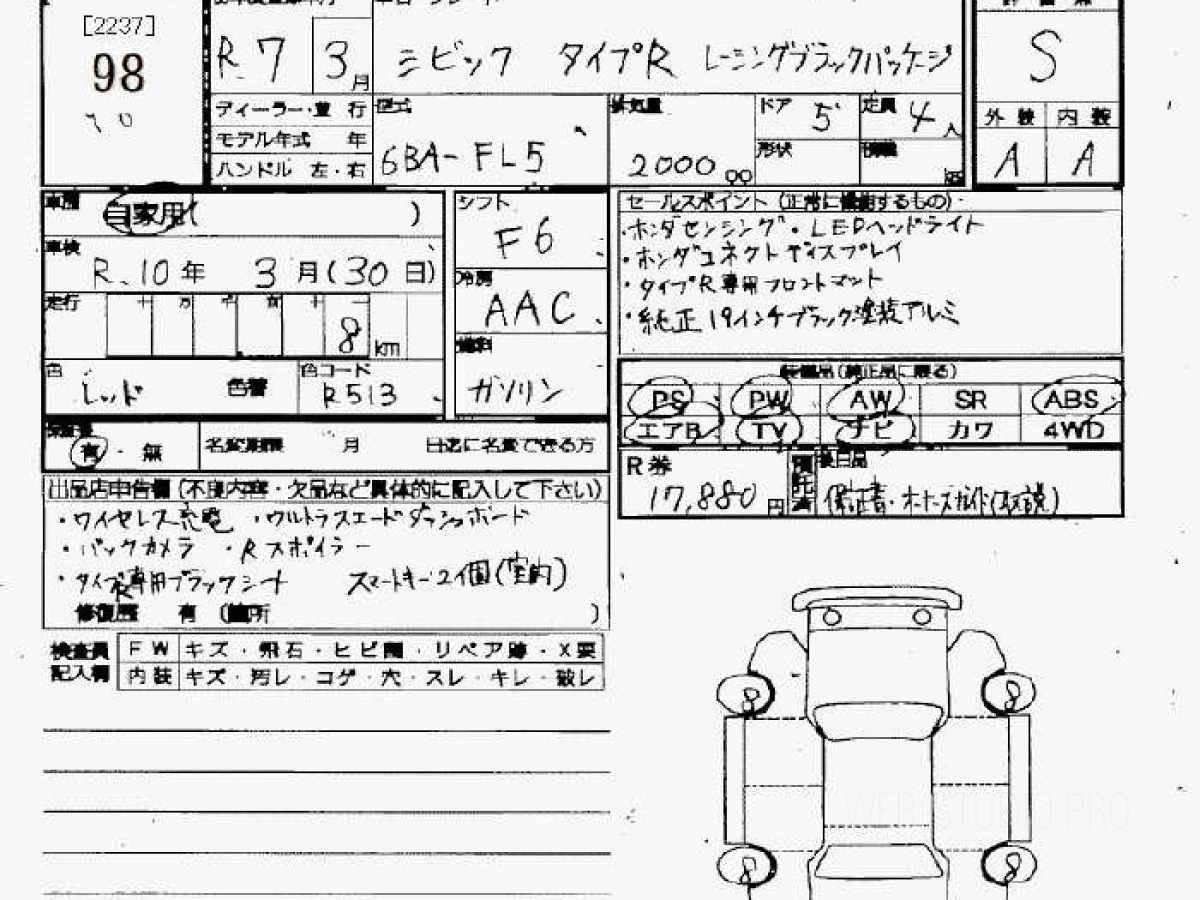 [2237]
98
R.7 3月
シビック タイプR レーシングブラックパッケージ
S
ディーラー・並行
モデル年式 年
ハンドル 左・右
型式
6BA-FL5
排気量
2000
ドア 5
定員 4人
形状
積載
外装 内装
A A
車歴
自家用( )
車検
R.10年 3月(30日)
走行
十 万 千 百 十 一
8 km
色
レッド
色替
色コード
R513
シフト
F6
冷房
AAC
燃料
ガソリン
セールスポイント (正常に機能するもの)
・ホンダセンシング・LEDヘッドライト
・ホンダコネクトディスプレイ
・タイプR専用フロントマット
・純正19インチブラック塗装アルミ
装備品(純正品に限る)
PS PW AW SR ABS
エアB TV ナビ カワ 4WD
保証書
有・無
名変期限 月 日迄に名変できる方
R券
17,880円
預託済
後日品
保証書・オーナーズガイド(取説)
出品店申告欄(不良内容・欠品など具体的に記入して下さい)
・ワイヤレス充電 ・ウルトラスエードダッシュボード
・バックカメラ ・Rスポイラー
・タイプR専用ブラックシート スマートキー2個(室内)
修復歴 有 (箇所 )
検査員 FW キズ・飛石・ヒビ割・リペア跡・X要
記入欄 内装 キズ・汚レ・コゲ・穴・スレ・キレ・破レ
8 8
WEB STUDIO.PRO
8 8